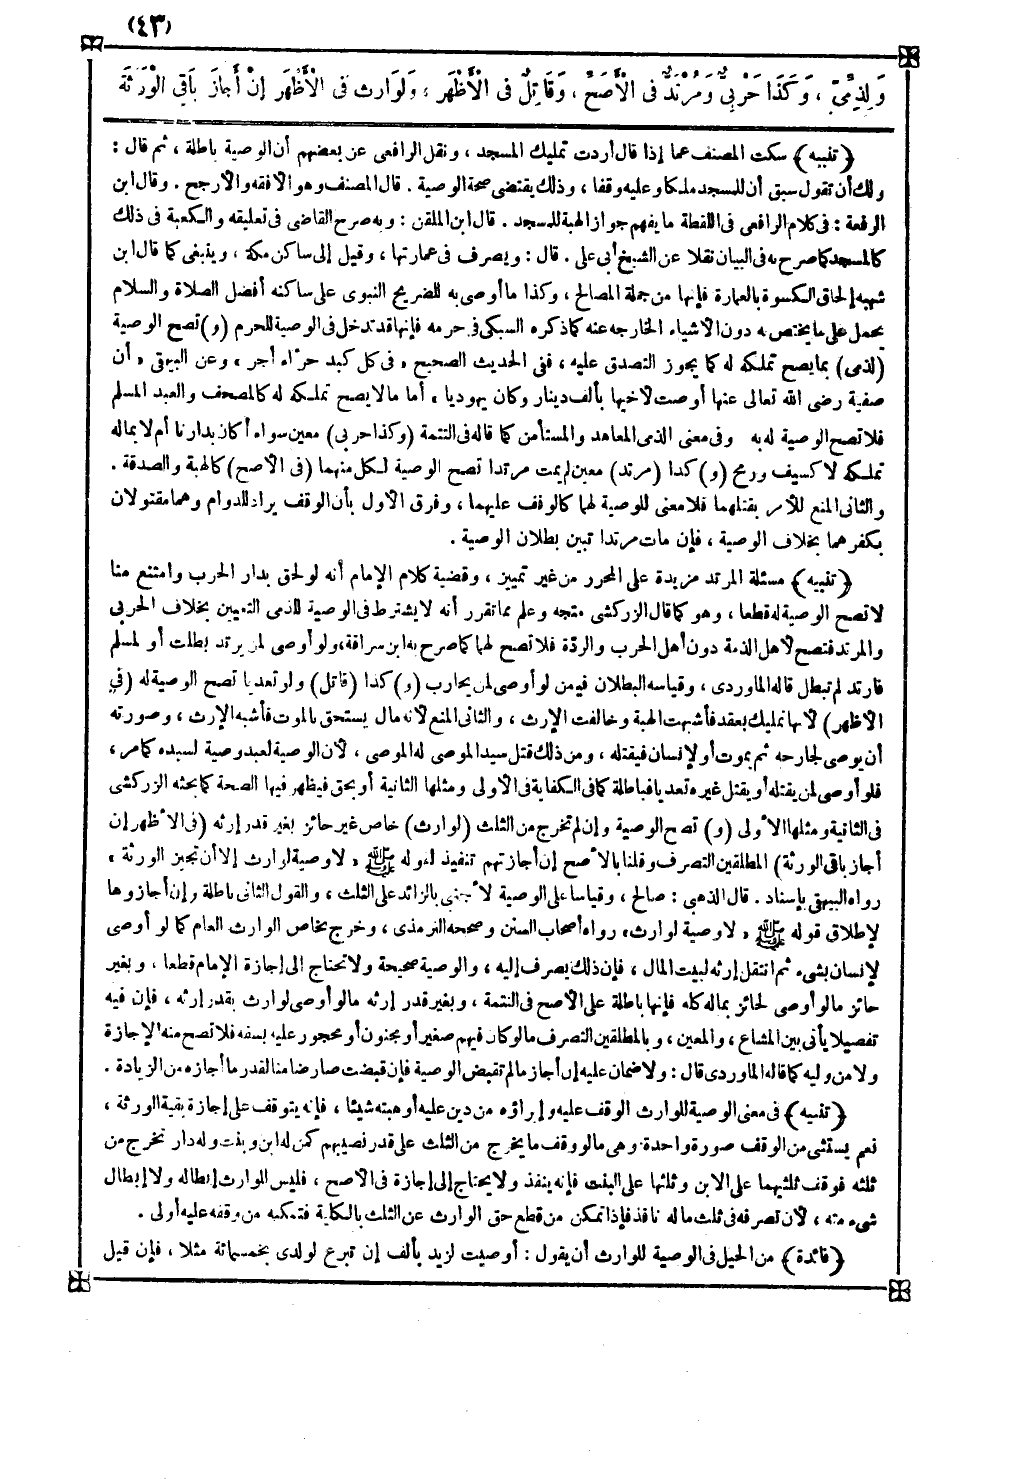 (٤٣)
وَلِذِمِّيٍّ ، وَكَذَا حَرْبِيٌّ وَمُرْتَدٌّ فى الْأَصَحِّ ، وَقَاتِلٌ فى الْأَظْهَرِ ، وَلِوَارِثٍ فى الْأَظْهَرِ إنْ أَجَازَ بَاقِى الْوَرَثَةِ
﴿تنبيه﴾ سكت المصنف عما إذا قال أردت تمليك المسجد ، ونقل الرافعى عن بعضهم أن الوصية باطلة ، ثم قال :
ولك أن تقول سبق أن للمسجد ملكا وعليه وقفا ، وذلك يقتضى صحة الوصية . قال المصنف وهو الأفقه والأرجح . وقال ابن
الرفعة : فى كلام الرافعى فى اللقطة ما يفهم جواز الهبة للمسجد . قال ابن الملقن : وبه صرح القاضى فى تعليقه والكعبة فى ذلك
كالمسجد كما صرح به فى البيان نقلا عن الشيخ أبى على . قال : ويصرف فى عمارتها ، وقيل إلى ساكن مكة ، وينبغى كما قال ابن
شهبه إلحاق الكسوة بالعمارة فإنها من جملة المصالح ، وكذا ما أوصى به للضريح النبوى على ساكنه أفضل الصلاة والسلام
يحمل على ما يختص به دون الأشياء الخارجه عنه كما ذكره السبكى فى حرمه فإنها قد تدخل فى الوصية للحرم (و) تصح الوصية
(لذمى) بما يصح تملكه له كما يجوز التصدق عليه ، ففى الحديث الصحيح « فى كل كبد حرّاء أجر » وعن البيهقى « أن
صفية رضى الله تعالى عنها أوصت لأخيها بألف دينار وكان يهوديا » أما ما لا يصح تملكه له كالمصحف والعبد المسلم
فلا تصح الوصية له به وفى معنى الذمى المعاهد والمستأمن كما قاله فى التتمة (وكذا حربى) معين سواء أكان بدارنا أم لا بماله
تملكه لا كسيف ورمح (و) كذا (مرتد) معين لم يمت مرتدا تصح الوصية لكل منهما (فى الأصح) كالهبة والصدقة .
والثانى المنع للأمر بقتلهما فلا معنى للوصية لهما كالوقف عليهما ، وفرق الأول بأن الوقف يراد للدوام وهما مقتولان
بكفرهما بخلاف الوصية ، فإن مات مرتدا تبين بطلان الوصية .
﴿تنبيه﴾ مسئلة المرتد مزيدة على المحرر من غير تمييز ، وقضية كلام الإمام أنه لو لحق بدار الحرب وامتنع منا
لا تصح الوصية له قطعا ، وهو كما قال الزركشى متجه وعلم مما تقرر أنه لا يشترط فى الوصية للذمى التعيين بخلاف الحربى
والمرتد فتصح لأهل الذمة دون أهل الحرب والردّة فلا تصح لهما كما صرح به ابن سراقة، ولو أوصى لمن يرتد بطلت أو لمسلم
فارتد لم تبطل قاله الماوردى ، وقياسه البطلان فيمن لو أوصى لمن يحارب (و) كذا (قاتل) ولو تعديا تصح الوصية له (فى
الأظهر) لأنها تمليك بعقد فأشبهت الهبة وخالفت الإرث ، والثانى المنع لأنه مال يستحق بالموت فأشبه الإرث ، وصورته
أن يوصى لجارحه ثم يموت أو لإنسان فيقتله ، ومن ذلك قتل سيد الموصى له الموصى ، لأن الوصية لعبد وصية لسيده كما مر ،
فلو أوصى لمن يقتله أو يقتل غيره تعديا فباطلة كما فى الكفاية فى الأولى ومثلها الثانية أو بحق فيظهر فيها الصحة كما بحثه الزركشى
فى الثانية ومثلها الأولى (و) تصح الوصية وإن لم تخرج من الثلث (لوارث) خاص غير حائز بغير قدر إرثه (فى الأظهر إن
أجاز باقى الورثة) المطلقين التصرف وقلنا بالأصح إن أجازتهم تنفيذ لقوله ﷺ « لا وصية لوارث إلا أن تجيز الورثة »
رواه البيهقى بإسناد . قال الذهبى : صالح ، وقياسا على الوصية لأجنبى بالزائد على الثلث ، والقول الثانى باطلة وإن أجازوها
لإطلاق قوله ﷺ « لا وصية لوارث » رواه أصحاب السنن وصححه الترمذى ، وخرج بخاص الوارث العام كما لو أوصى
لإنسان بشىء ثم انتقل إرثه لبيت المال ، فإن ذلك يصرف إليه ، والوصية صحيحة ولا تحتاج الى إجازة الإمام قطعا ، وبغير
حائز ما لو أوصى لحائز بماله كله فإنها باطلة على الأصح فى التتمة ، وبغير قدر إرثه ما لو أوصى لوارث بقدر إرثه ، فإن فيه
تفصيلا يأتى بين المشاع ، والمعين ، وبالمطلقين التصرف ما لو كان فيهم صغير أو مجنون أو محجور عليه بسفه فلا تصح منه الإجازة
ولا من وليه كما قاله الماوردى قال : ولا ضمان عليه إن أجاز ما لم تقبض الوصية فإن قبضت صار ضامنا لقدر ما أجازه من الزيادة .
﴿تنبيه﴾ فى معنى الوصية للوارث الوقف عليه وإبراؤه من دين عليه أو هبته شيئا ، فإنه يتوقف على إجازة بقية الورثة ،
نعم يستثنى من الوقف صورة واحدة وهى ما لو وقف ما يخرج من الثلث على قدر نصيبهم كمن له ابن وبنت وله دار تخرج من
ثلثه فوقف ثلثيهما على الابن وثلثها على البنت فإنه ينفذ ولا يحتاج إلى إجازة فى الأصح ، فليس للوارث إبطاله ولا إبطال
شىء منه ، لأن تصرفه فى ثلث ماله نافذ فإذا تمكن من قطع حق الوارث عن الثلث بالكلية فتمكنه من وقفه عليه أولى .
﴿فائدة﴾ من الحيل فى الوصية للوارث أن يقول : أوصيت لزيد بألف إن تبرع لولدى بخمسمائة مثلا ، فإن قبل